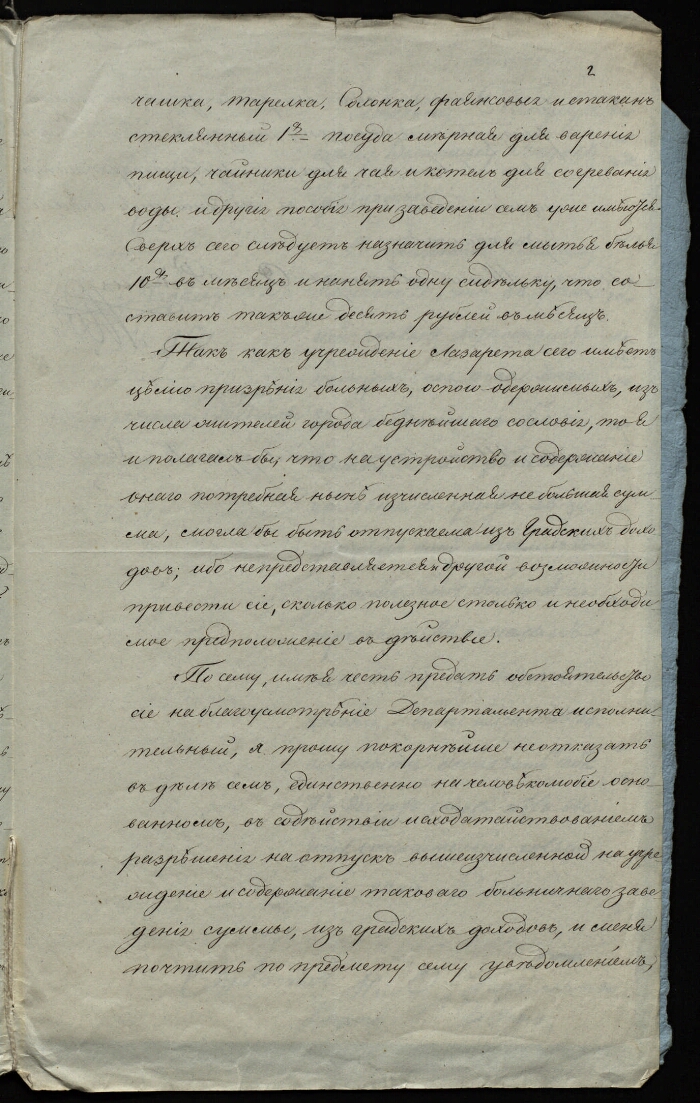 2
чашка, тарелка, Солонка, фаянсовыя и стаканъ
стеклянный 1й посуда мѣрная для варенія
пищи, чайники для чая и котелъ для согреванія
воды и другія пособія при заведеніи семъ уже имѣются.
Сверхъ сего слѣдуетъ назначить для мытья бѣлья
10 въ мѣсяцъ и нанять одну сидѣлку, что со-
ставитъ также десять рублей въ мѣсяцъ.
Такъ какъ учрежденіе Лазарета сего имѣетъ
цѣлію призрѣніе больныхъ, оспою одержимыхъ, изъ
числа жителей города беднѣйшаго сословія, то я
и полагалъ бы, что на устройство и содержаніе
онаго потребная нынѣ изчисленная не большая сум
ма, смогла бы быть отпускаема изъ Градскихъ дохо
довъ; ибо непредставляется другой возможности
привести сіе, сколько полезное столько и необходи
мое предположеніе въ дѣйствіе.
По сему, имѣя честь предать обстоятельство
сіе на благоусмотрѣніе Департамента исполни-
тельный, я прошу покорнѣйше неотказать
въ дѣлѣ семъ, единственно на человѣколюбіе осно-
ванномъ, въ содѣйствіи исходатайствованіемъ
разрѣшенія на отпускъ вышеизчисленной на учре
жденіе и содержаніе таковаго больничнаго заве
денія суммы, изъ градскихъ доходовъ, и меня
почтить по предмету сему увѣдомленіемъ,